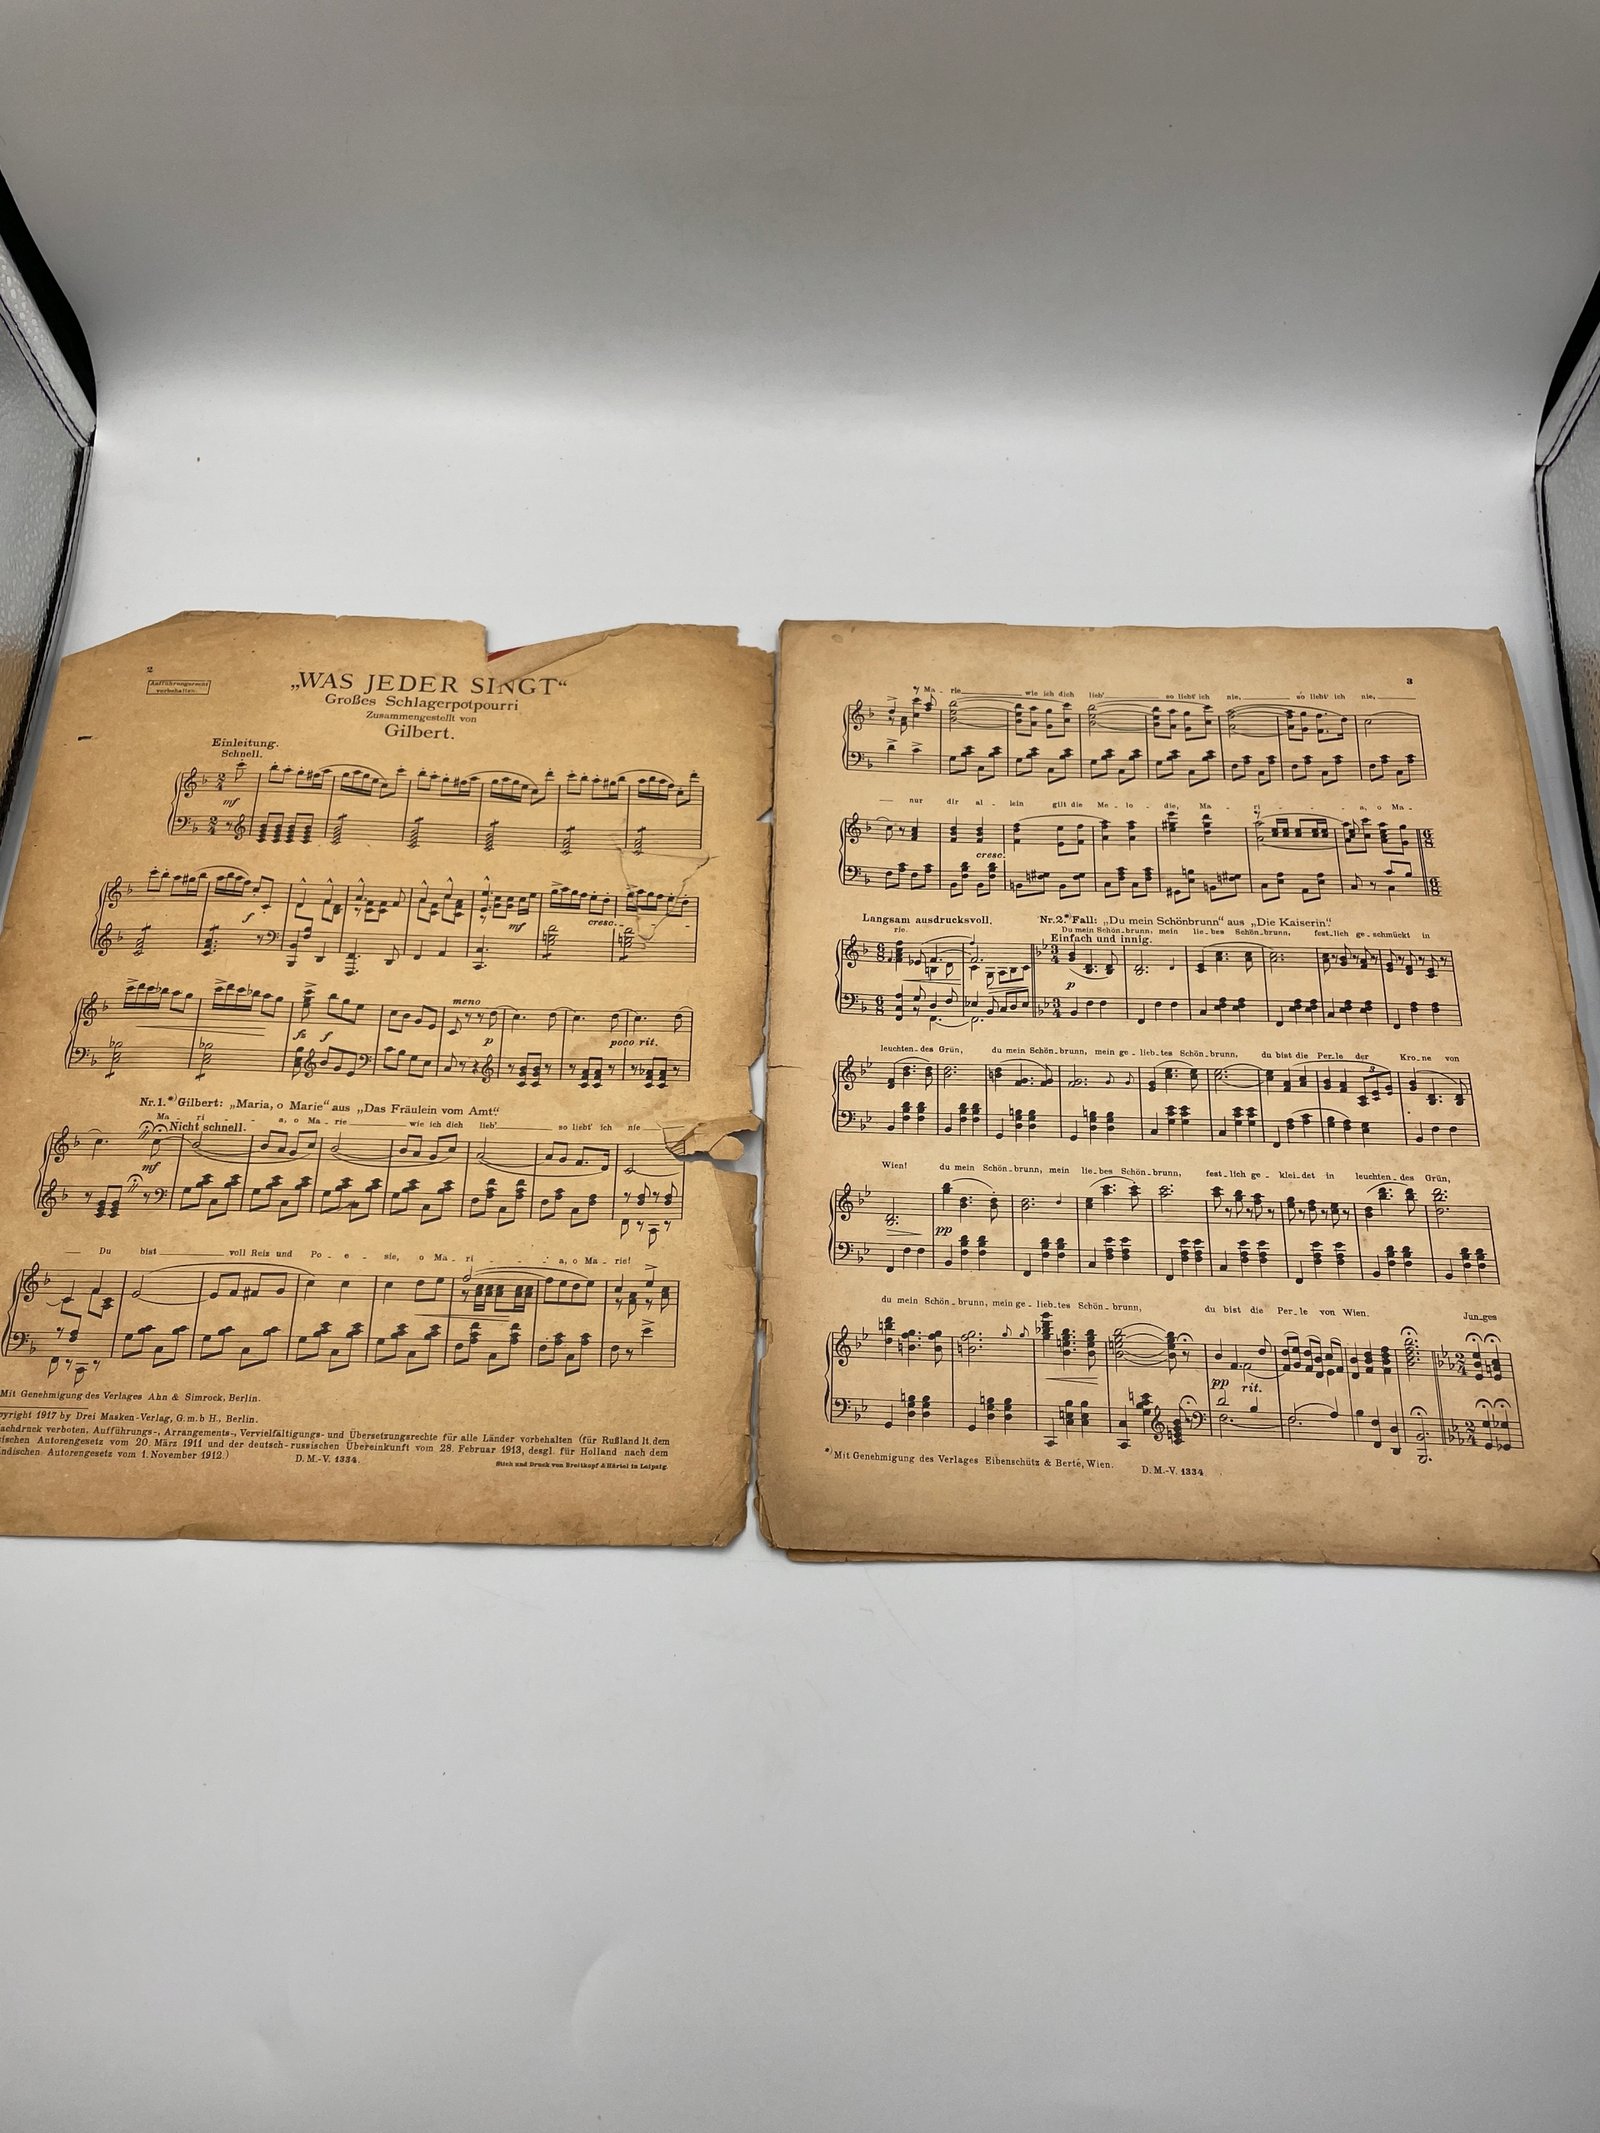 2
Aufführungsrecht
vorbehalten.
„WAS JEDER SINGT“
Großes Schlagerpotpourri
Zusammengestellt von
Gilbert.
Einleitung.
Schnell.
mf
f
mf
cresc.
meno
fz f
p
poco rit.
Nr. 1.*) Gilbert: „Maria, o Marie“ aus „Das Fräulein vom Amt“
Ma - ri - a, o Ma - rie wie ich dich lieb' so liebt' ich nie
Nicht schnell.
mf
Du bist voll Reiz und Po - e - sie, o Ma - ri - a, o Ma - rie!
Mit Genehmigung des Verlages Ahn & Simrock, Berlin.
pyright 1917 by Drei Masken-Verlag, G.m.b H., Berlin.
achdruck verboten, Aufführungs-, Arrangements-, Vervielfältigungs- und Übersetzungsrechte für alle Länder vorbehalten (für Rußland lt. dem
ischen Autorengesetz vom 20. März 1911 und der deutsch-russischen Übereinkunft vom 28. Februar 1913, desgl. für Holland nach dem
ändischen Autorengesetz vom 1. November 1912.)
D. M.-V. 1334.
Stich und Druck von Breitkopf & Härtel in Leipzig.
3
Ma - rie wie ich dich lieb' so liebt' ich nie, so liebt' ich nie,
nur dir al - lein gilt die Me - lo - die, Ma - ri - a, o Ma -
cresc.
Langsam ausdrucksvoll.
Nr. 2.*) Fall: „Du mein Schönbrunn“ aus „Die Kaiserin“.
rie. Du mein Schön-brunn, mein lie-bes Schön-brunn, fest-lich ge-schmückt in
Einfach und innig.
p
leuchten-des Grün, du mein Schön-brunn, mein ge-lieb-tes Schön-brunn, du bist die Per-le der Kro-ne von
Wien! du mein Schön-brunn, mein lie-bes Schön-brunn, fest-lich ge-klei-det in leuchten-des Grün,
pp
du mein Schön-brunn, mein ge-lieb-tes Schön-brunn, du bist die Per-le von Wien. Jun-ges
pp rit.
*) Mit Genehmigung des Verlages Eibenschütz & Berté, Wien.
D. M.-V. 1334